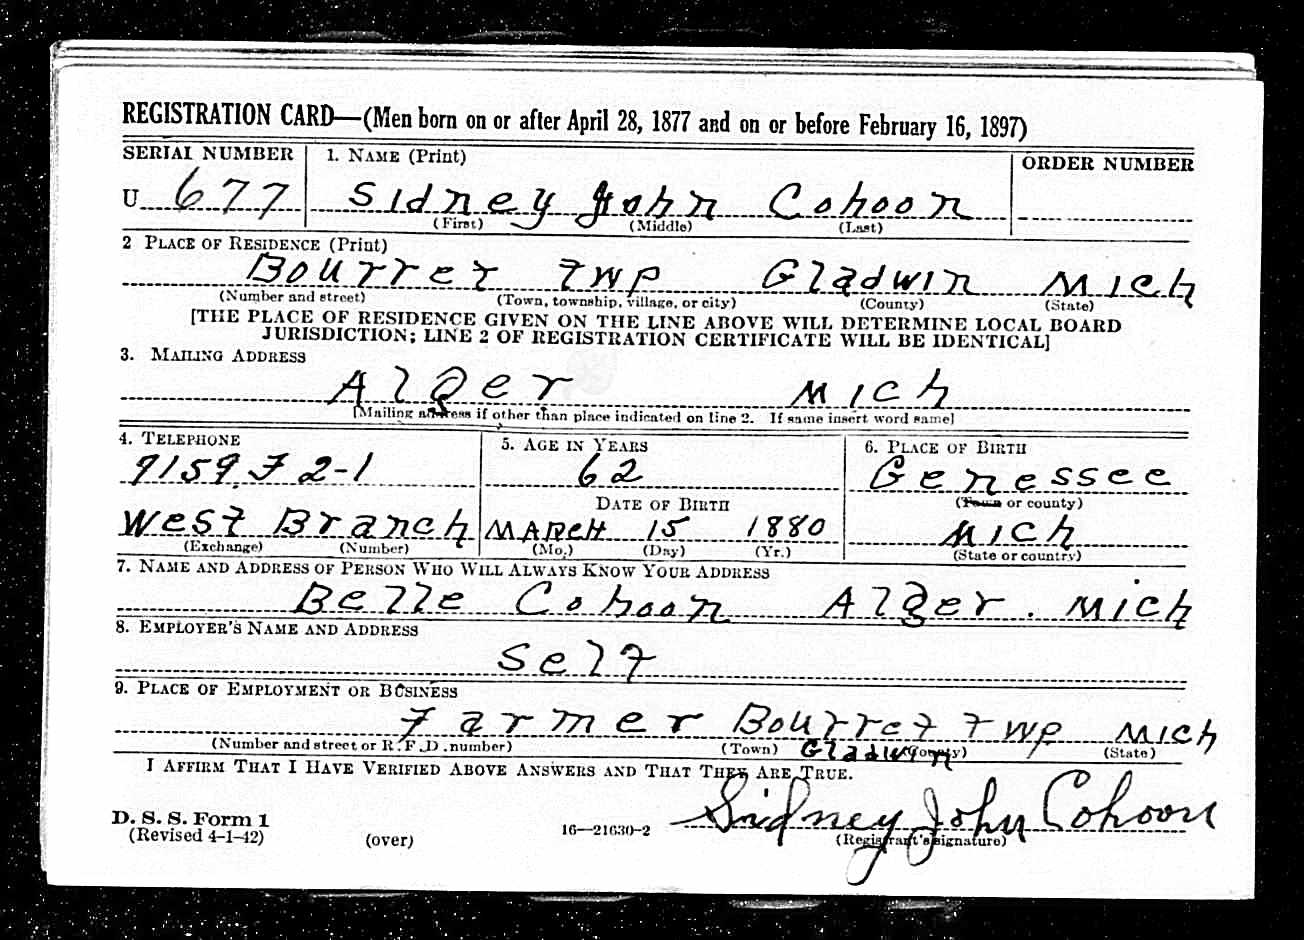 REGISTRATION CARD—(Men born on or after April 28, 1877 and on or before February 16, 1897)
SERIAL NUMBER 1. NAME (Print) ORDER NUMBER
U 677 Sidney John Cohoon
(First) (Middle) (Last)
2 PLACE OF RESIDENCE (Print)
Bourret Twp Gladwin Mich
(Number and street) (Town, township, village, or city) (County) (State)
[THE PLACE OF RESIDENCE GIVEN ON THE LINE ABOVE WILL DETERMINE LOCAL BOARD
JURISDICTION; LINE 2 OF REGISTRATION CERTIFICATE WILL BE IDENTICAL]
3. MAILING ADDRESS
Alger Mich
[Mailing address if other than place indicated on line 2. If same insert word same]
4. TELEPHONE 5. AGE IN YEARS 6. PLACE OF BIRTH
9159 F 2-1 62 Genessee
DATE OF BIRTH (Town or county)
West Branch MARCH 15 1880 Mich
(Exchange) (Number) (Mo.) (Day) (Yr.) (State or country)
7. NAME AND ADDRESS OF PERSON WHO WILL ALWAYS KNOW YOUR ADDRESS
Belle Cohoon Alger. Mich
8. EMPLOYER'S NAME AND ADDRESS
Self
9. PLACE OF EMPLOYMENT OR BUSINESS
Farmer Bourret Twp Mich
(Number and street or R. F. D. number) (Town) Gladwin (County) (State)
I AFFIRM THAT I HAVE VERIFIED ABOVE ANSWERS AND THAT THEY ARE TRUE.
Sidney John Cohoon
D. S. S. Form 1
(Revised 4-1-42) (over) 16—21630-2 (Registrant's signature)